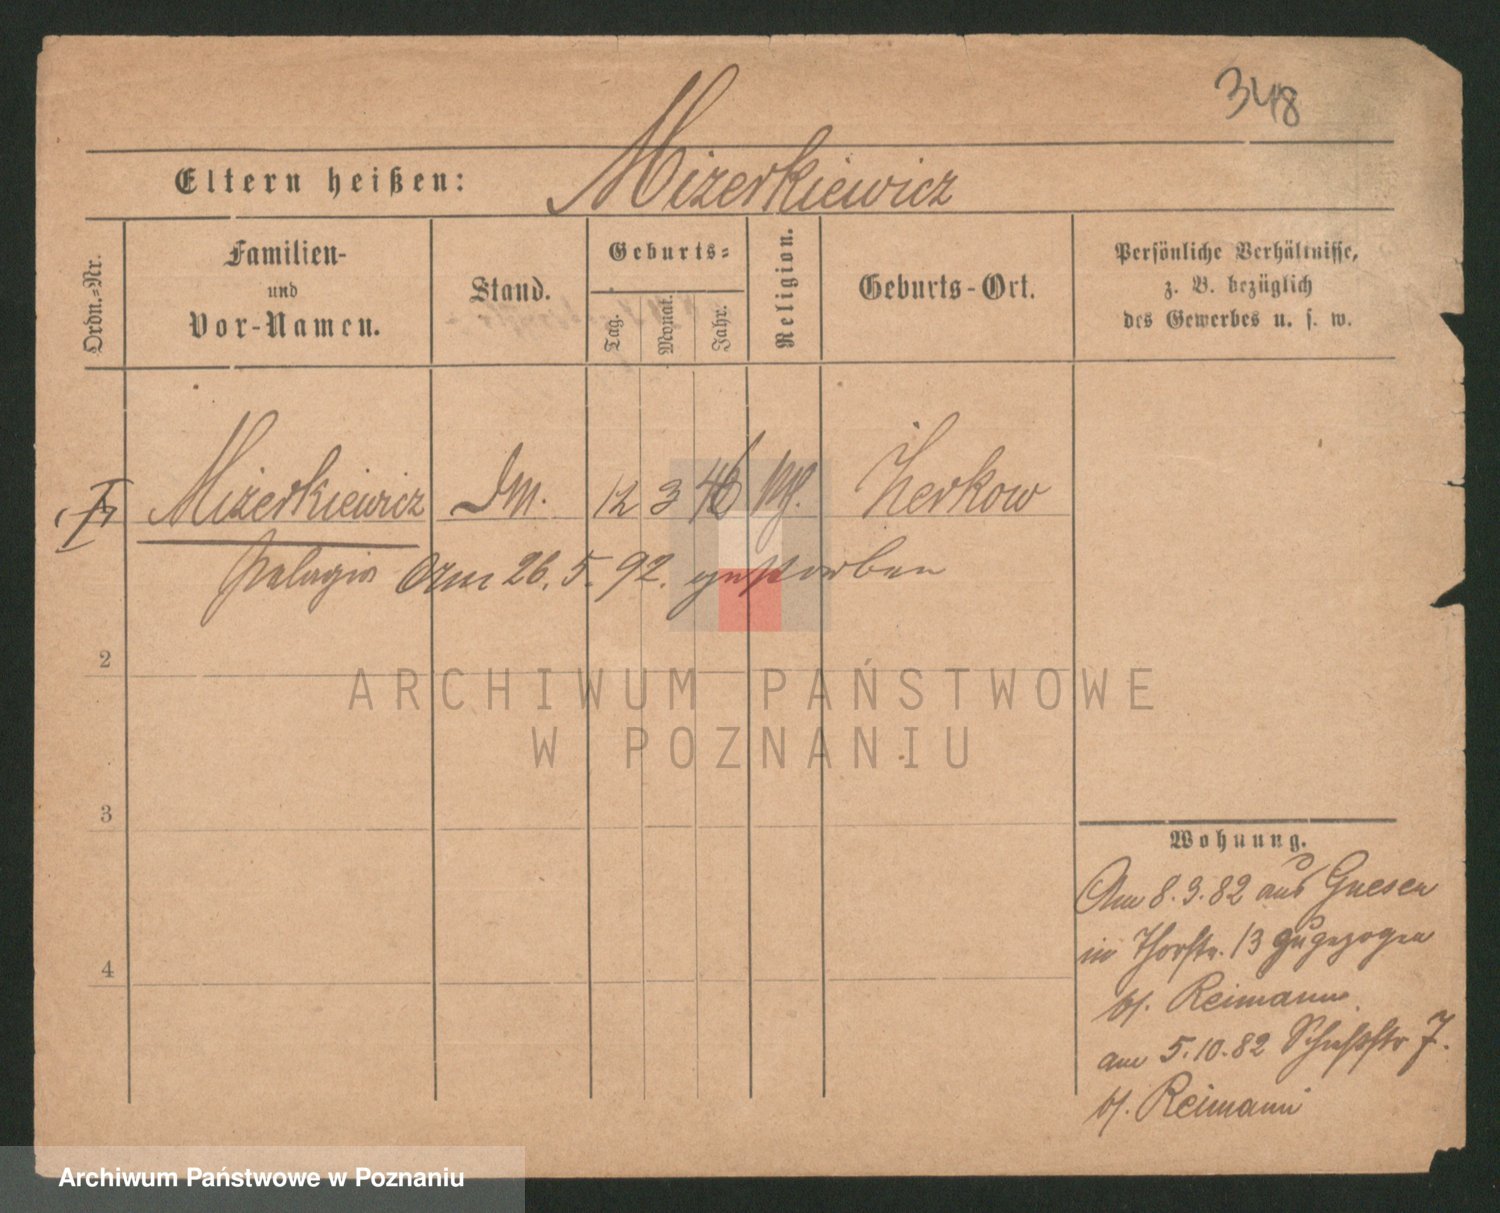 348
Eltern heißen: Mizerkiewicz
Ordn.=Nr.
Familien-
und
Vor-Namen.
Stand.
Geburts=
Tag.
Monat.
Jahr.
Religion.
Geburts-Ort.
Persönliche Verhältnisse,
z. B. bezüglich
des Gewerbes u. s. w.
Mizerkiewicz 12 3 46 Zerkow
Pelagia Am 26.5.92. gestorben
2
3
4
Wohnung.
Am 8.3.82 aus Gnesen
in Thorstr. 13 zugezogen
bf. Reimann
am 5.10.82 Schuhstr 7.
bf. Reimann
ARCHIWUM PAŃSTWOWE
W POZNANIU
Archiwum Państwowe w Poznaniu